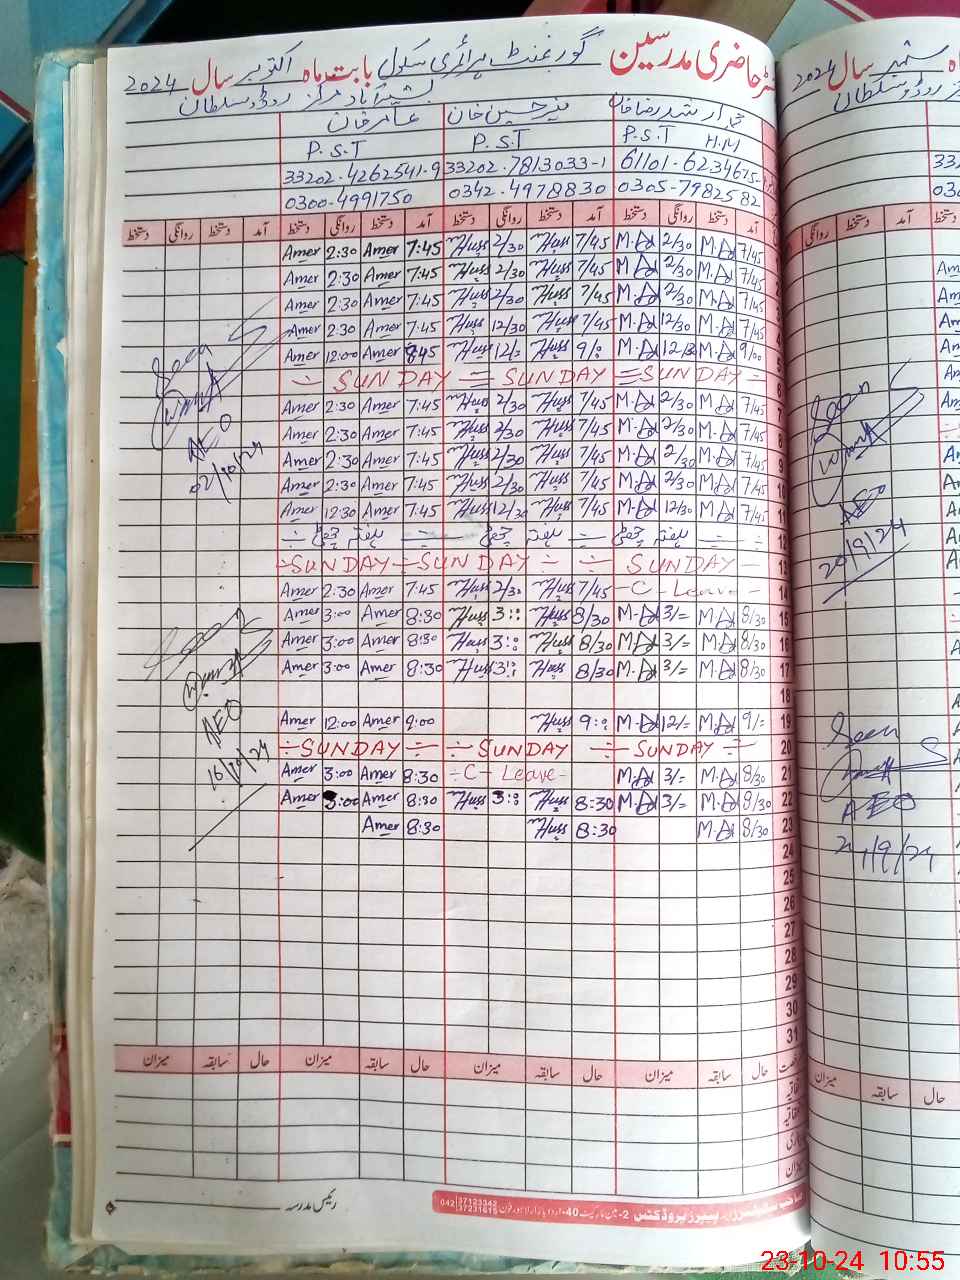 حاضری مدرسین گورنمنٹ پرائمری سکول بابت ماہ اکتوبر سال 2024
بشیر آباد مرکز روڈو سلطان
محمد ارشد رضا خان
منیر حسین خان
عامر خان
H.M P.S.T P.S.T P.S.T
61101-6234675- 33202-7813033-1 33202-4262541-9
0305-7982582 0342-4978830 0300-4991750
آمد دستخط روانگی دستخط آمد دستخط روانگی دستخط آمد دستخط روانگی دستخط آمد دستخط روانگی دستخط
7/45 M.Ad 2/30 M.Ad 7/45 Huss 2/30 Huss 7:45 Amer 2:30 Amer
7/45 M.Ad 2/30 M.Ad 7/45 Huss 2/30 Huss 7:45 Amer 2:30 Amer
7/45 M.Ad 2/30 M.Ad 7/45 Huss 2/30 Huss 7:45 Amer 2:30 Amer
7/45 M.Ad 12/30 M.Ad 7/45 Huss 12/30 Huss 7:45 Amer 2:30 Amer
9/00 M.Ad M.Ad 9/: Huss 12/: Huss 8:45 Amer 12:00 Amer
6 SUNDAY SUNDAY SUNDAY
7/45 M.Ad 2/30 M.Ad 7/45 Huss 2/30 Huss 7:45 Amer 2:30 Amer
8 7/45 M.Ad 2/30 M.Ad 7/45 Huss 2/30 Huss 7:45 Amer 2:30 Amer
9 7/45 M.Ad 2/30 M.Ad 7/45 Huss 2/30 Huss 7:45 Amer 2:30 Amer
10 7/45 M.Ad 2/30 M.Ad 7/45 Huss 2/30 Huss 7:45 Amer 2:30 Amer
11 7/45 M.Ad 12/30 M.Ad 7/45 Huss 12/30 Huss 7:45 Amer 12:30 Amer
12 ہفتہ چھٹی ہفتہ چھٹی ہفتہ چھٹی
13 SUNDAY SUNDAY SUNDAY
14 C-Leave 7/45 Huss 2/30 Huss 7:45 Amer 2:30 Amer
15 8/30 M.Ad 3/= M.Ad 8/30 Huss 3:: Huss 8:30 Amer 3:00 Amer
16 8/30 M.Ad 3/= M.Ad 8/30 Huss 3:: Huss 8:30 Amer 3:00 Amer
17 8/30 M.Ad 3/= M.Ad 8/30 Huss 3:: Huss 8:30 Amer 3:00 Amer
18
19 9/= M.Ad 12/= M.Ad 9:: Huss 9:00 Amer 12:00 Amer
20 SUNDAY SUNDAY SUNDAY
21 8/30 M.Ad 3/= M.Ad C-Leave 8:30 Amer 3:00 Amer
22 8/30 M.Ad 3/= M.Ad 8:30 Huss 3:: Huss 8:30 Amer 3:00 Amer
23 8/30 M.Ad 8:30 Huss 8:30 Amer
24
25
26
27
28
29
30
31
حال سابقہ میزان حال سابقہ میزان حال سابقہ میزان حال سابقہ میزان
رئیس مدرسہ
042 37123342
37231615
Seen
AEO
02/10/24
AEO
16/10/24
ماہ ستمبر سال 2024
روڈو سلطان
Seen
AEO
20/9/24
Seen
AEO
21/9/24
حال سابقہ میزان
23-10-24 10:55